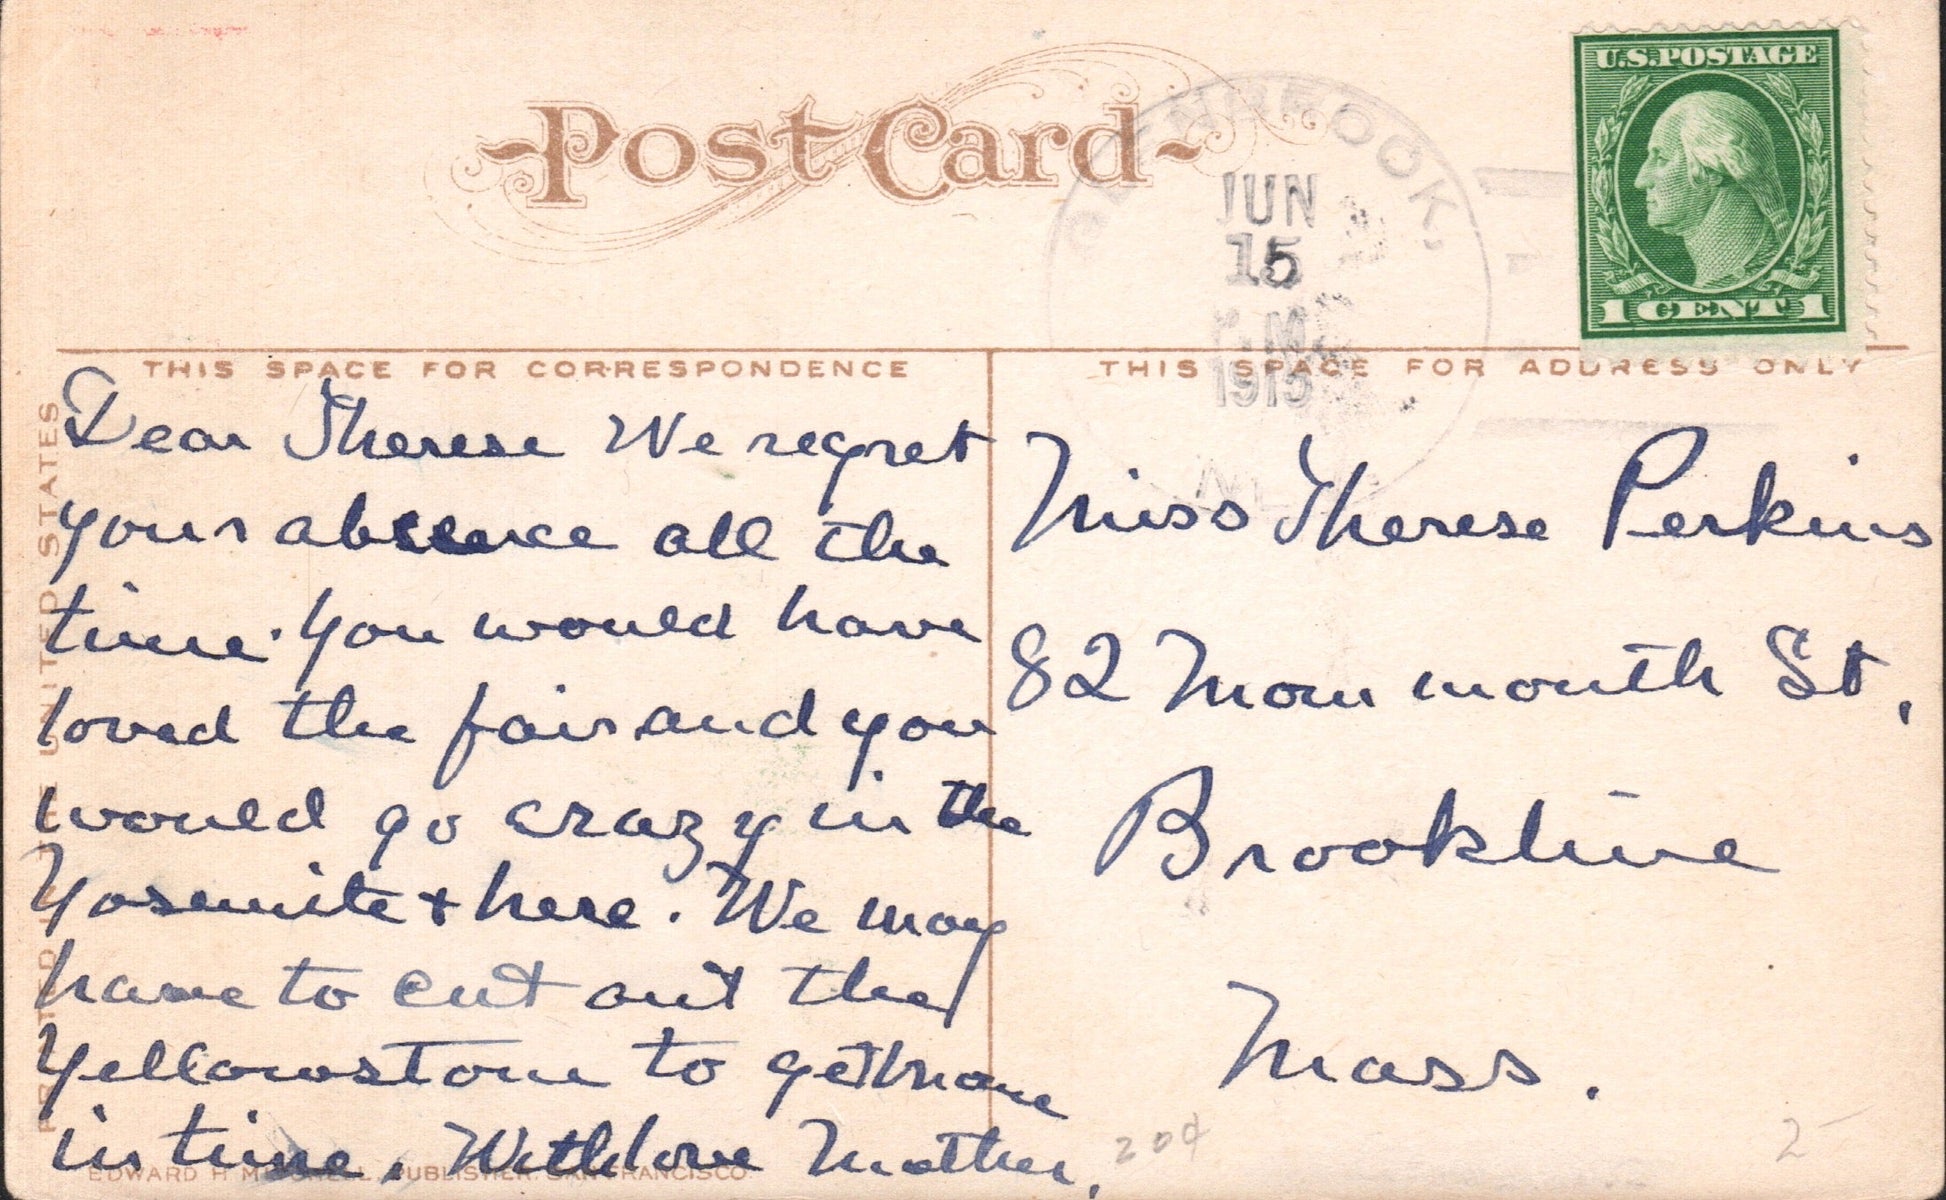 Post Card
U.S. POSTAGE
1 CENT 1
GLENBROOK,
JUN
15
M
1915
NEV.
THIS SPACE FOR CORRESPONDENCE
THIS SPACE FOR ADDRESS ONLY
Dear Therese We regret
your absence all the
time. You would have
loved the fair and you
would go crazy in the
Yosemite + here. We may
have to cut out the
Yellowstone to get home
in time. With love Mother.
Miss Therese Perkins
82 Monmouth St,
Brookline
Mass.
20¢
2-
PRINTED IN THE UNITED STATES
EDWARD H. MITCHELL, PUBLISHER, SAN FRANCISCO